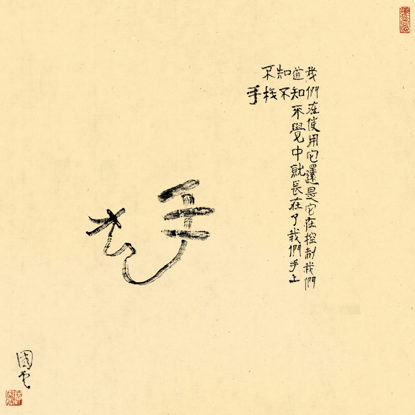 手機不知不覺中就長在了我們手上
不知道我們在使用它還是它在控制我們
手机